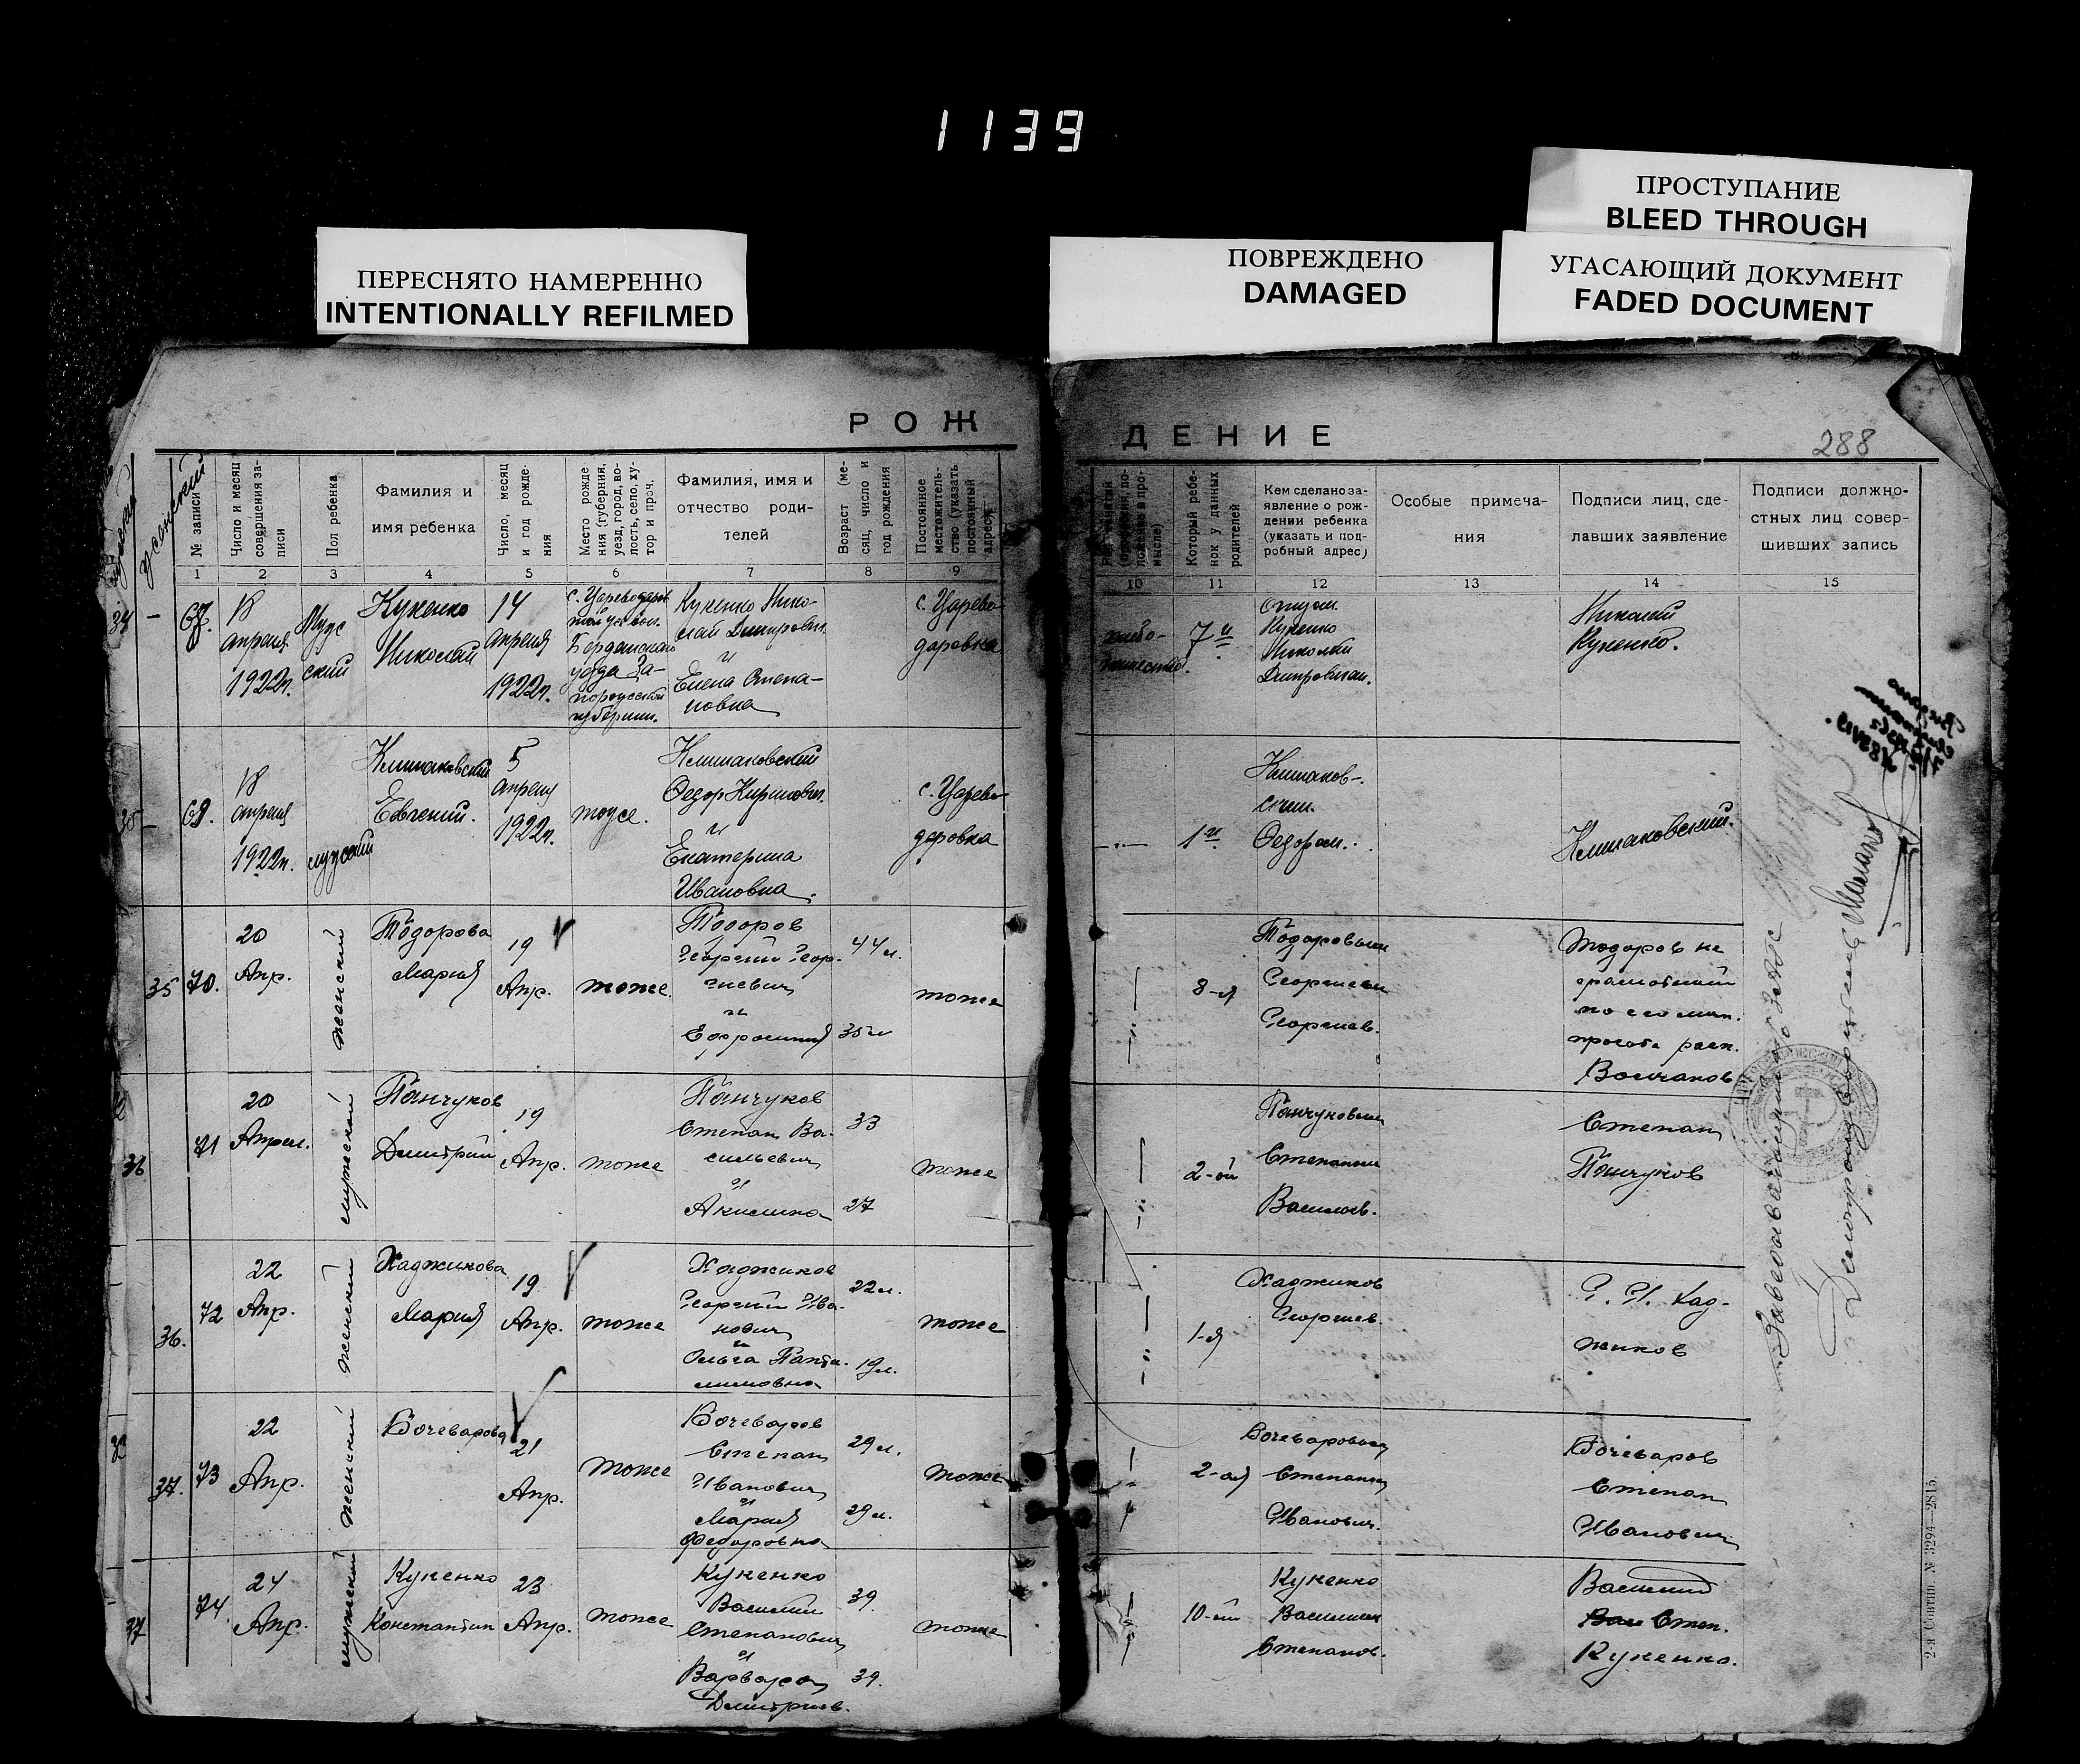 1139
ПРОСТУПАНИЕ
BLEED THROUGH
ПЕРЕСНЯТО НАМЕРЕННО
INTENTIONALLY REFILMED
ПОВРЕЖДЕНО
DAMAGED
УГАСАЮЩИЙ ДОКУМЕНТ
FADED DOCUMENT
РОЖ
ДЕНИЕ
288
мужский
женский
№ записи
Число и месяц
совершения за-
писи
Пол ребенка
Фамилия и
имя ребенка
Число, месяц
и год рожде-
ния
Место рожде
ния (губерния,
уезд, город, во-
лость, село, ху-
тор и проч.
Фамилия, имя и
отчество роди-
телей
Возраст (ме-
сяц, число и
год рождения
Постоянное
местожитель-
ство (указать
постоянный
адрес)
Который ребе-
нок у данных
родителей
Кем сделано за-
явление о рож-
дении ребенка
(указать и под-
робный адрес)
Особые примеча-
ния
Подписи лиц, сде-
лавших заявление
Подписи должно-
стных лиц совер-
шивших запись
1 2 3 4 5 6 7 8 9
10 11 12 13 14 15
34
18
апреля
1922г.
Муж
ский
Кукенко
Николай
14
апреля
1922г.
Бердянского
уезда За-
порожской
губернии.
Кукенко Нико-
лай Дмитриевич
и
Елена Степа-
новна
с. Царево
даровка
7й
Отцом
Кукенко
Николай
Дмитриевич.
Николай
Кукенко.
18
апреля
1922г.
мужский
Климаковский
Евгений.
5
апреля
1922г.
тоже.
Климаковский
Федор Кириллович
и
Екатерина
Ивановна.
с. Царево
даровка
1й
Климаков-
ским
Федором.
Климаковский.
35
70.
20
Апр.
женский
Тодорова
Мария
19
Апр.
тоже
Тодоров
Георгий Геор-
гиевич
и
Ефросиния
44 л.
35 л
тоже
8-я
Тодоровым
Георгием
Георгиев.
Тодоров не
грамотный
по его личн.
просьбе расп.
Волчанов
36
71
20
Апрел.
мужеский
Панчуков
Дмитрий
19
Апр.
тоже
Панчуков
Степан Ва-
сильевич
и
Акилина
33
27
тоже
2-ой
Панчуковым
Степаном
Васильев.
Степан
Панчуков
36.
72
22
Апр.
женский
Хаджикова
Мария
19
Апр.
тоже
Хаджиков
Георгий Ива-
нович
и
Ольга Панте-
лимовна
22 л.
19 л.
тоже
1-я
Хаджиков
Георгиев.
Г. И. Хад-
жиков
37.
73
22
Апр.
женский
Бочеварова
21
Апр.
тоже
Бочеваров
Степан
Иванович
и
Мария
Федоровна
29 л.
29 л.
тоже
2-ая
Бочеваровым
Степаном
Иванович.
Бочеваров
Степан
Иванович
37
74.
24
Апр.
мужеский
Кукенко
Константин
23
Апр.
тоже
Кукенко
Василий
Степанович
и
Варвара
Дмитриев.
39.
39.
тоже
10-ый
Кукенко
Василием
Степанов.
Василий
Степ.
Кукенко.
Заведывающий
Делопроизводитель
2-я Совтип. № 3294—2815.